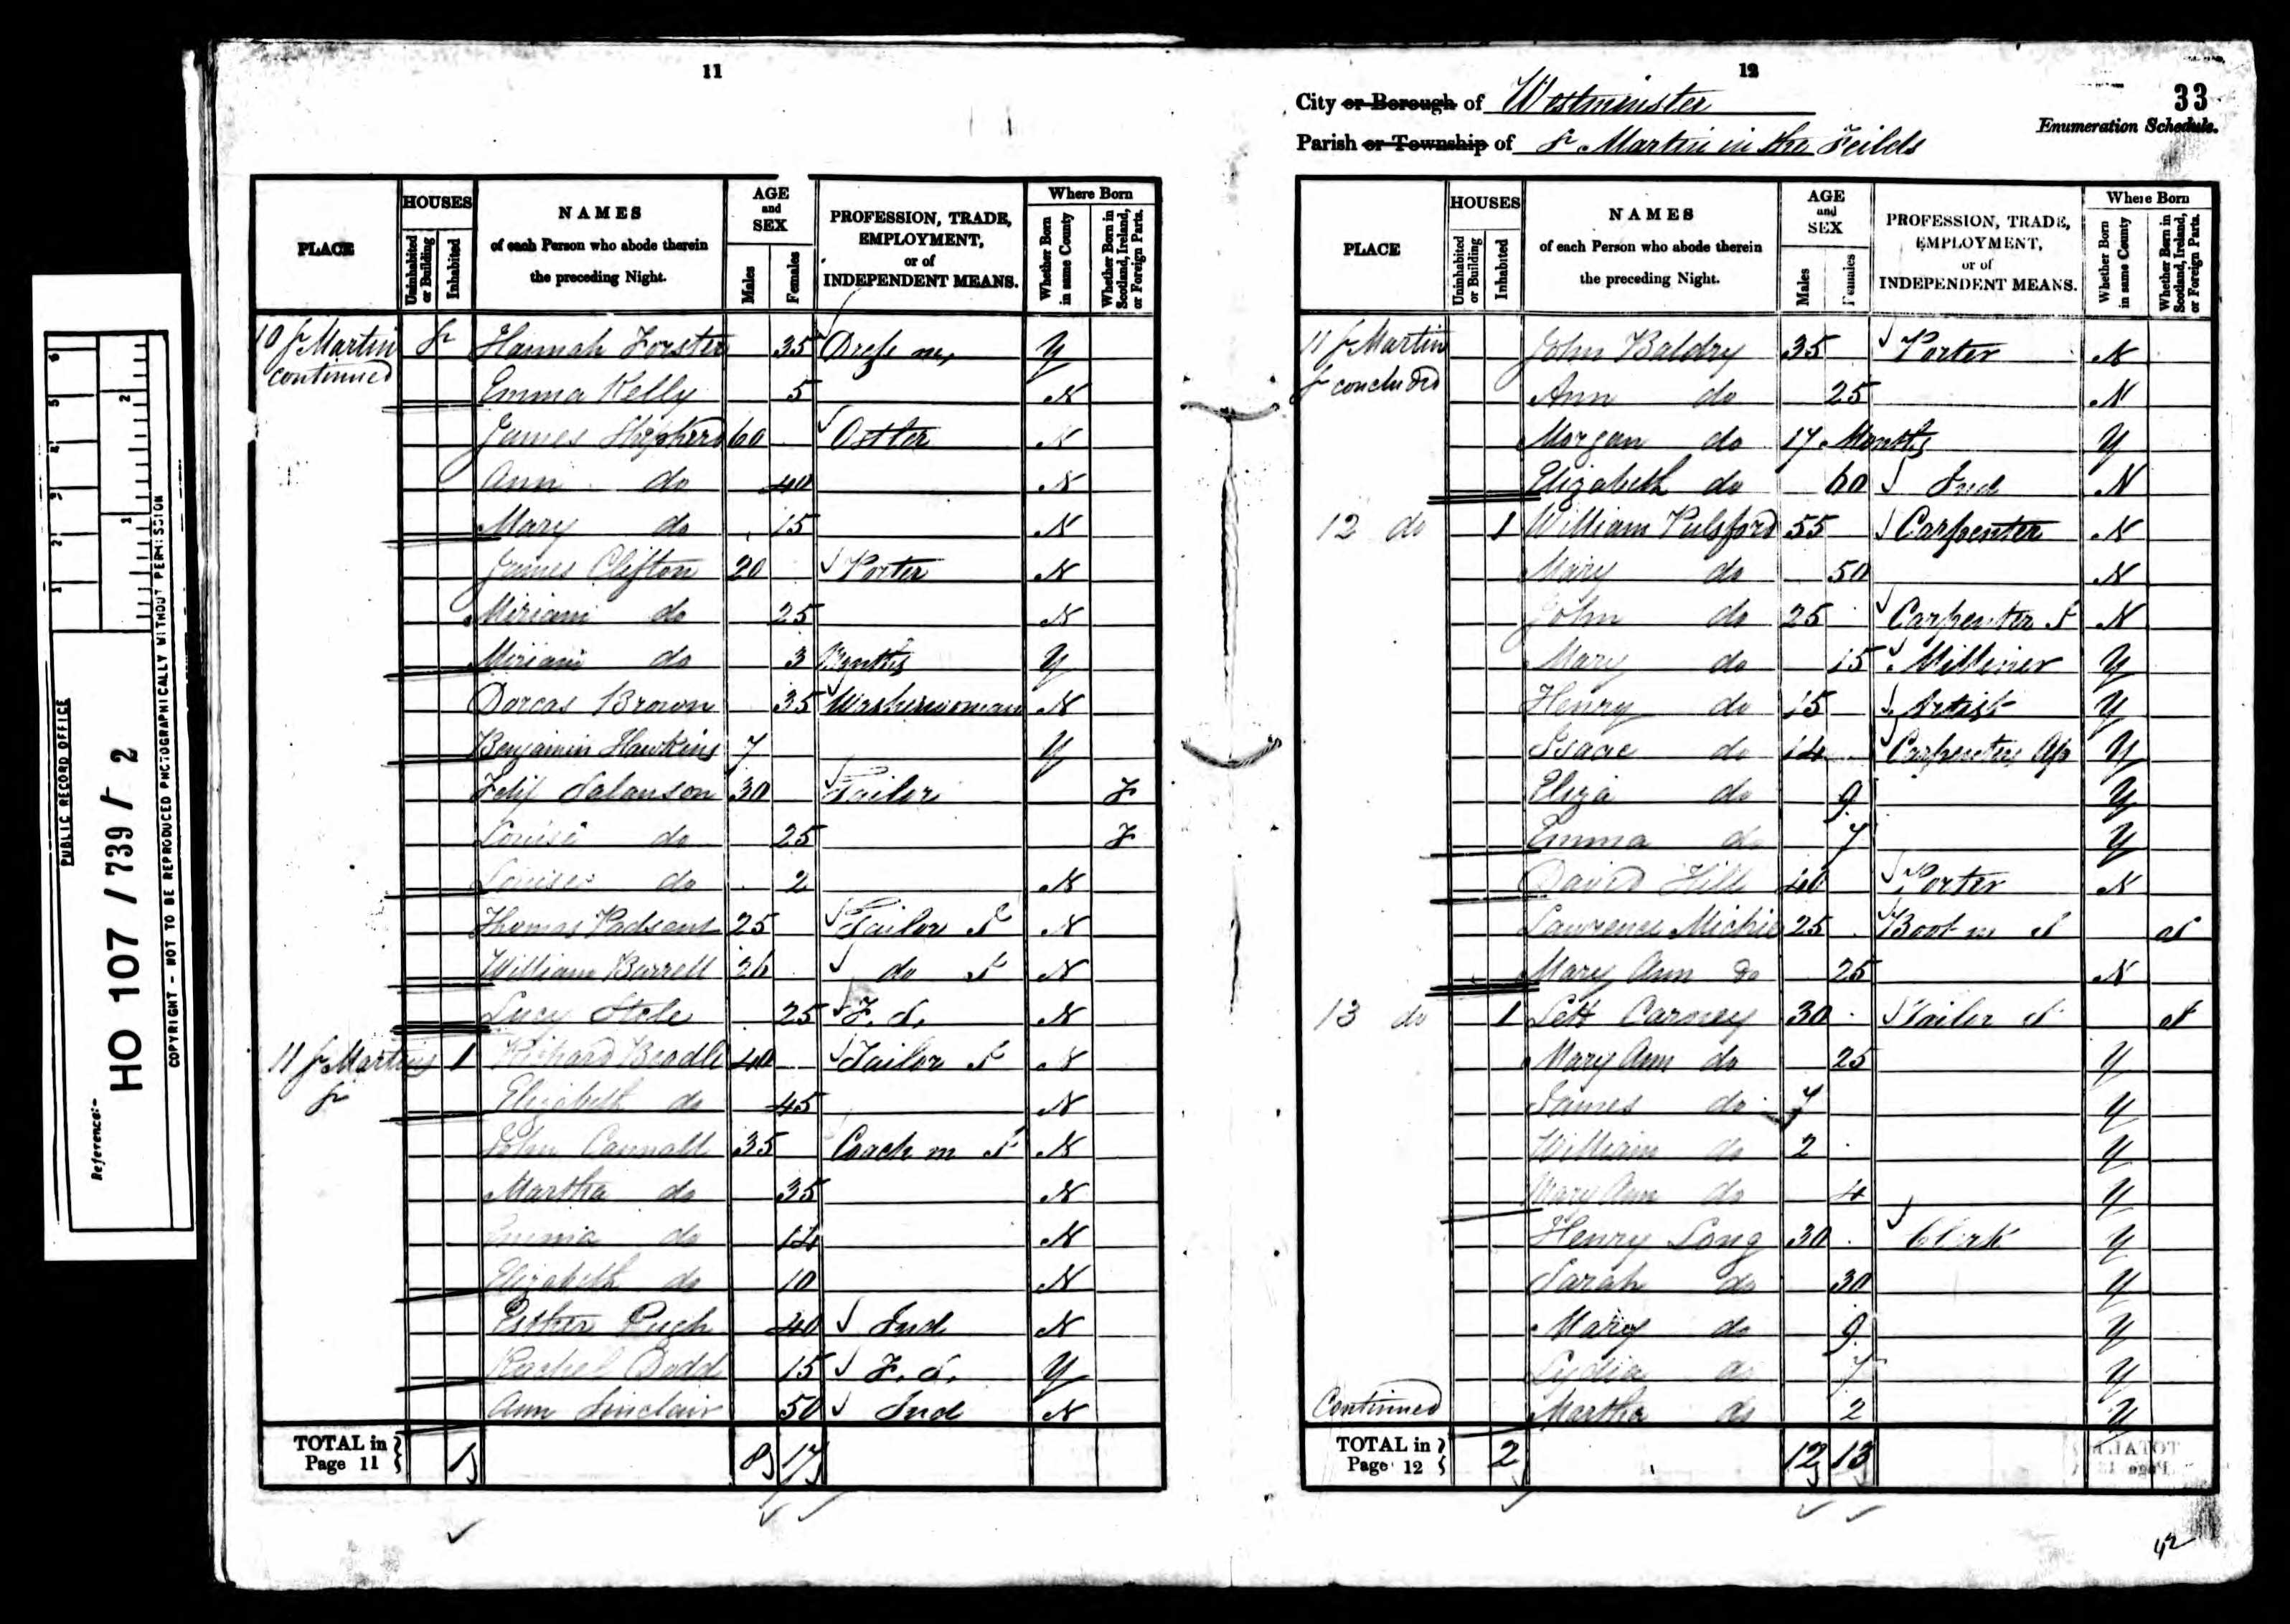 PUBLIC RECORD OFFICE
Reference:-
HO 107 / 739 / 2
COPYRIGHT - NOT TO BE REPRODUCED PHOTOGRAPHICALLY WITHOUT PERMISSION
11
PLACE
HOUSES
Uninhabited or Building
Inhabited
NAMES
of each Person who abode therein
the preceding Night.
AGE and SEX
Males
Females
PROFESSION, TRADE, EMPLOYMENT, or of INDEPENDENT MEANS.
Where Born
Whether Born in same County
Whether Born in Scotland, Ireland, or Foreign Parts.
10 St Martin St Hannah Forster 35 Dress m, Y
continued Emma Kelly 5 N
James Shepherd 60 Ostler N
Ann do 40 N
Mary do 15 N
James Clifton 20 Porter N
Miriam do 25 N
Miriam do 3 Months Y
Dorcas Brown 35 Washerwoman N
Benjamin Hawkins 7 Y
30 Tailor F
Louise do 25 F
Louise do 2 N
Thomas 25 Tailor J N
William Burrell 26 do J N
Lucy 25 F. S. N
11 St Martins 1 Richard 40 Tailor J N
St Elizabeth do 45 N
John 35 Coach m J N
Martha do 35 N
Emma do 14 N
Elizabeth do 10 N
Esther Pugh 40 Ind N
Rachel Dodd 15 F. S. Y
Ann Sinclair 50 Ind N
TOTAL in Page 11 1 8 17
12
City or Borough of Westminster
Parish or Township of St Martin in the Feilds
33
Enumeration Schedule.
PLACE
HOUSES
Uninhabited or Building
Inhabited
NAMES
of each Person who abode therein
the preceding Night.
AGE and SEX
Males
Females
PROFESSION, TRADE, EMPLOYMENT, or of INDEPENDENT MEANS.
Where Born
Whether Born in same County
Whether Born in Scotland, Ireland, or Foreign Parts.
11 St Martin John Baldry 35 Porter N
St concluded Ann do 25 N
Morgan do 17 Months Y
Elizabeth do 60 Ind N
12 do 1 William Pulsford 55 Carpenter N
Mary do 50 N
John do 25 Carpenter J N
Mary do 15 Milliner Y
Henry do 15 Artist Y
Isaac do 14 Carpenters Ap Y
Eliza do 9 Y
Emma do 7 Y
David Hill 40 Porter N
Lawrence Michie 25 Boot m J S
Mary Ann do 25 N
13 do 1 Carney 30 Tailor J S
Mary Ann do 25 Y
James do 7 Y
William do 2 Y
Mary Ann do 4 Y
Henry Long 30 Clerk Y
Sarah do 30 Y
Mary do 9 Y
Lydia do 7 Y
Continued Martha do 2 Y
TOTAL in Page 12 2 12 13
42